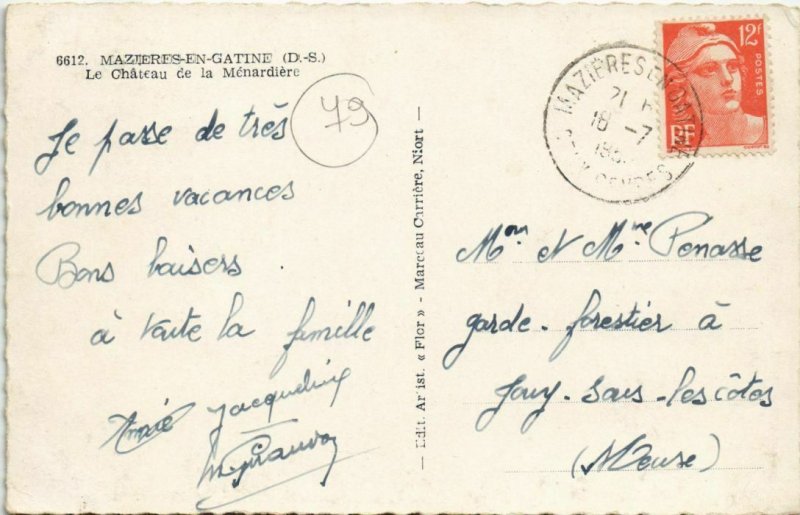 6612. MAZIERES-EN-GATINE (D.-S.)
Le Château de la Ménardière
79
Je passe de très
bonnes vacances
Bons baisers
à toute la famille
Aimée Jacqueline
— Edit. Artist. « Flor » - Marceau Carrière, Niort —
12F
POSTES
RF
MAZIERES EN GATINE
21 H
18 -7
195
DEUX SEVRES
Mon et Mme Penasse
garde-forestier à
Jouy-sous-les-côtes
(Meuse)